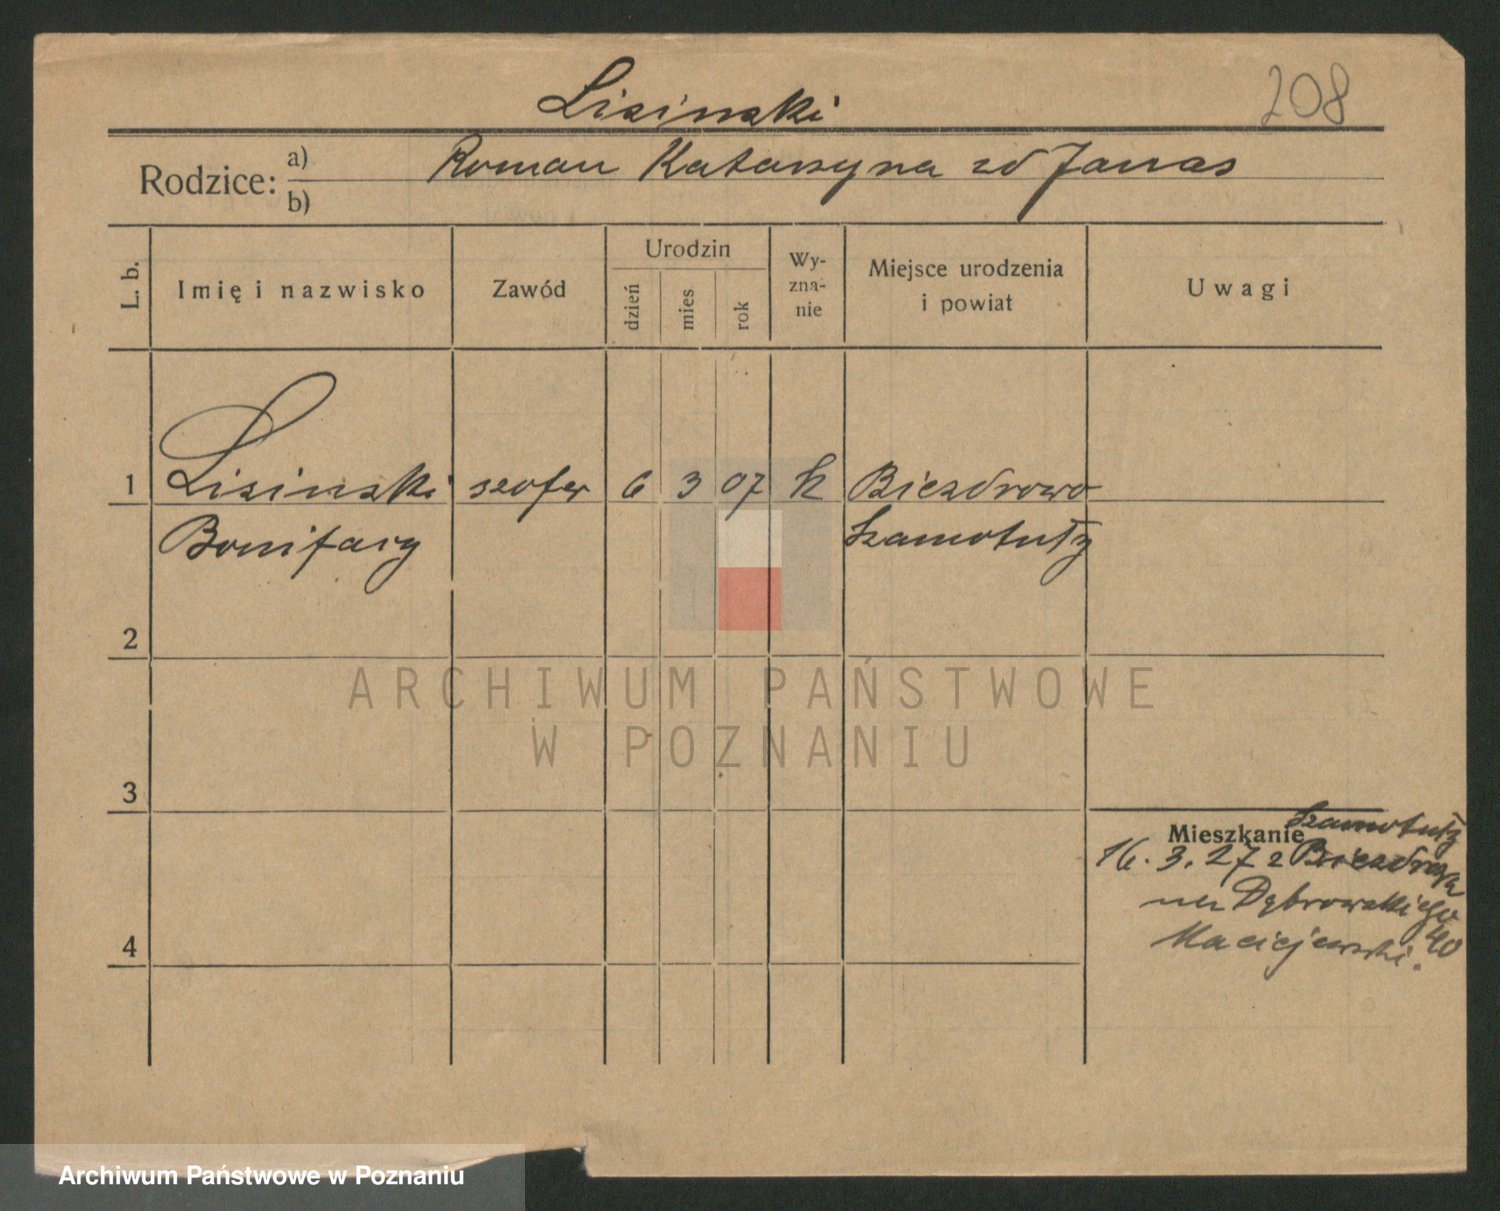 Lisinski
208
Rodzice: a) Roman Katarzyna zd Janas
b)
L. b.
Imię i nazwisko
Zawód
Urodzin
dzień
mies
rok
Wy-
zna-
nie
Miejsce urodzenia
i powiat
Uwagi
1 Lisinski szofer 6 3 07 k Biezdrowo
Bonifacy Szamotuły
2
ARCHIWUM PAŃSTWOWE
W POZNANIU
3
Szamotuły
Mieszkanie
16. 3. 27 z
na Dąbrowskiego
40
4 Maciejewski.
Archiwum Państwowe w Poznaniu